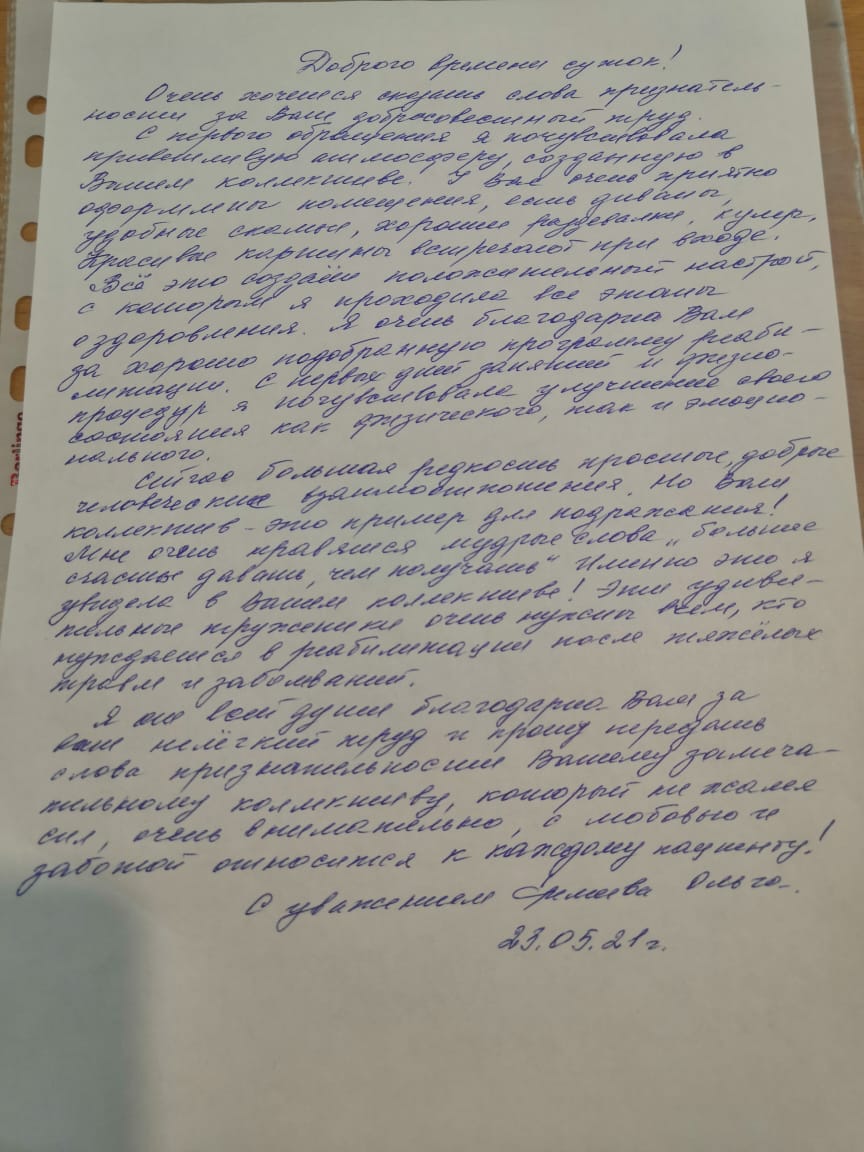 Доброго времени суток!
Очень хочется сказать слова признатель-
ности за Ваш добросовестный труд.
С первого обращения я почувствовала
приветливую атмосферу, созданную в
Вашем коллективе. У Вас очень приятно
оформлены помещения, есть диваны,
удобные скамьи, хорошие раздевалки, кулер.
Красивые картины встречают при входе.
Всё это создаёт положительный настрой,
с которым я проходила все этапы
оздоровления. Я очень благодарна Вам
за хорошо подобранную программу реаби-
литации. С первых дней занятий и физио-
процедур я почувствовала улучшение своего
состояния как физического, так и эмоцио-
нального.
Сейчас большая редкость простые, добрые
человеческие взаимоотношения. Но Ваш
коллектив - это пример для подражания!
Мне очень нравятся мудрые слова „больше
счастья давать, чем получать“ Именно это я
увидела в Вашем коллективе! Эти удиви-
тельные труженики очень нужны всем, кто
нуждается в реабилитации после тяжёлых
травм и заболеваний.
Я от всей души благодарна Вам за
ваш нелёгкий труд и прошу передать
слова признательности Вашему замеча-
тельному коллективу, который не жалея
сил, очень внимательно, с любовью и
заботой относится к каждому пациенту!
С уважением Ольга.
23.05.21г.
Berlingo